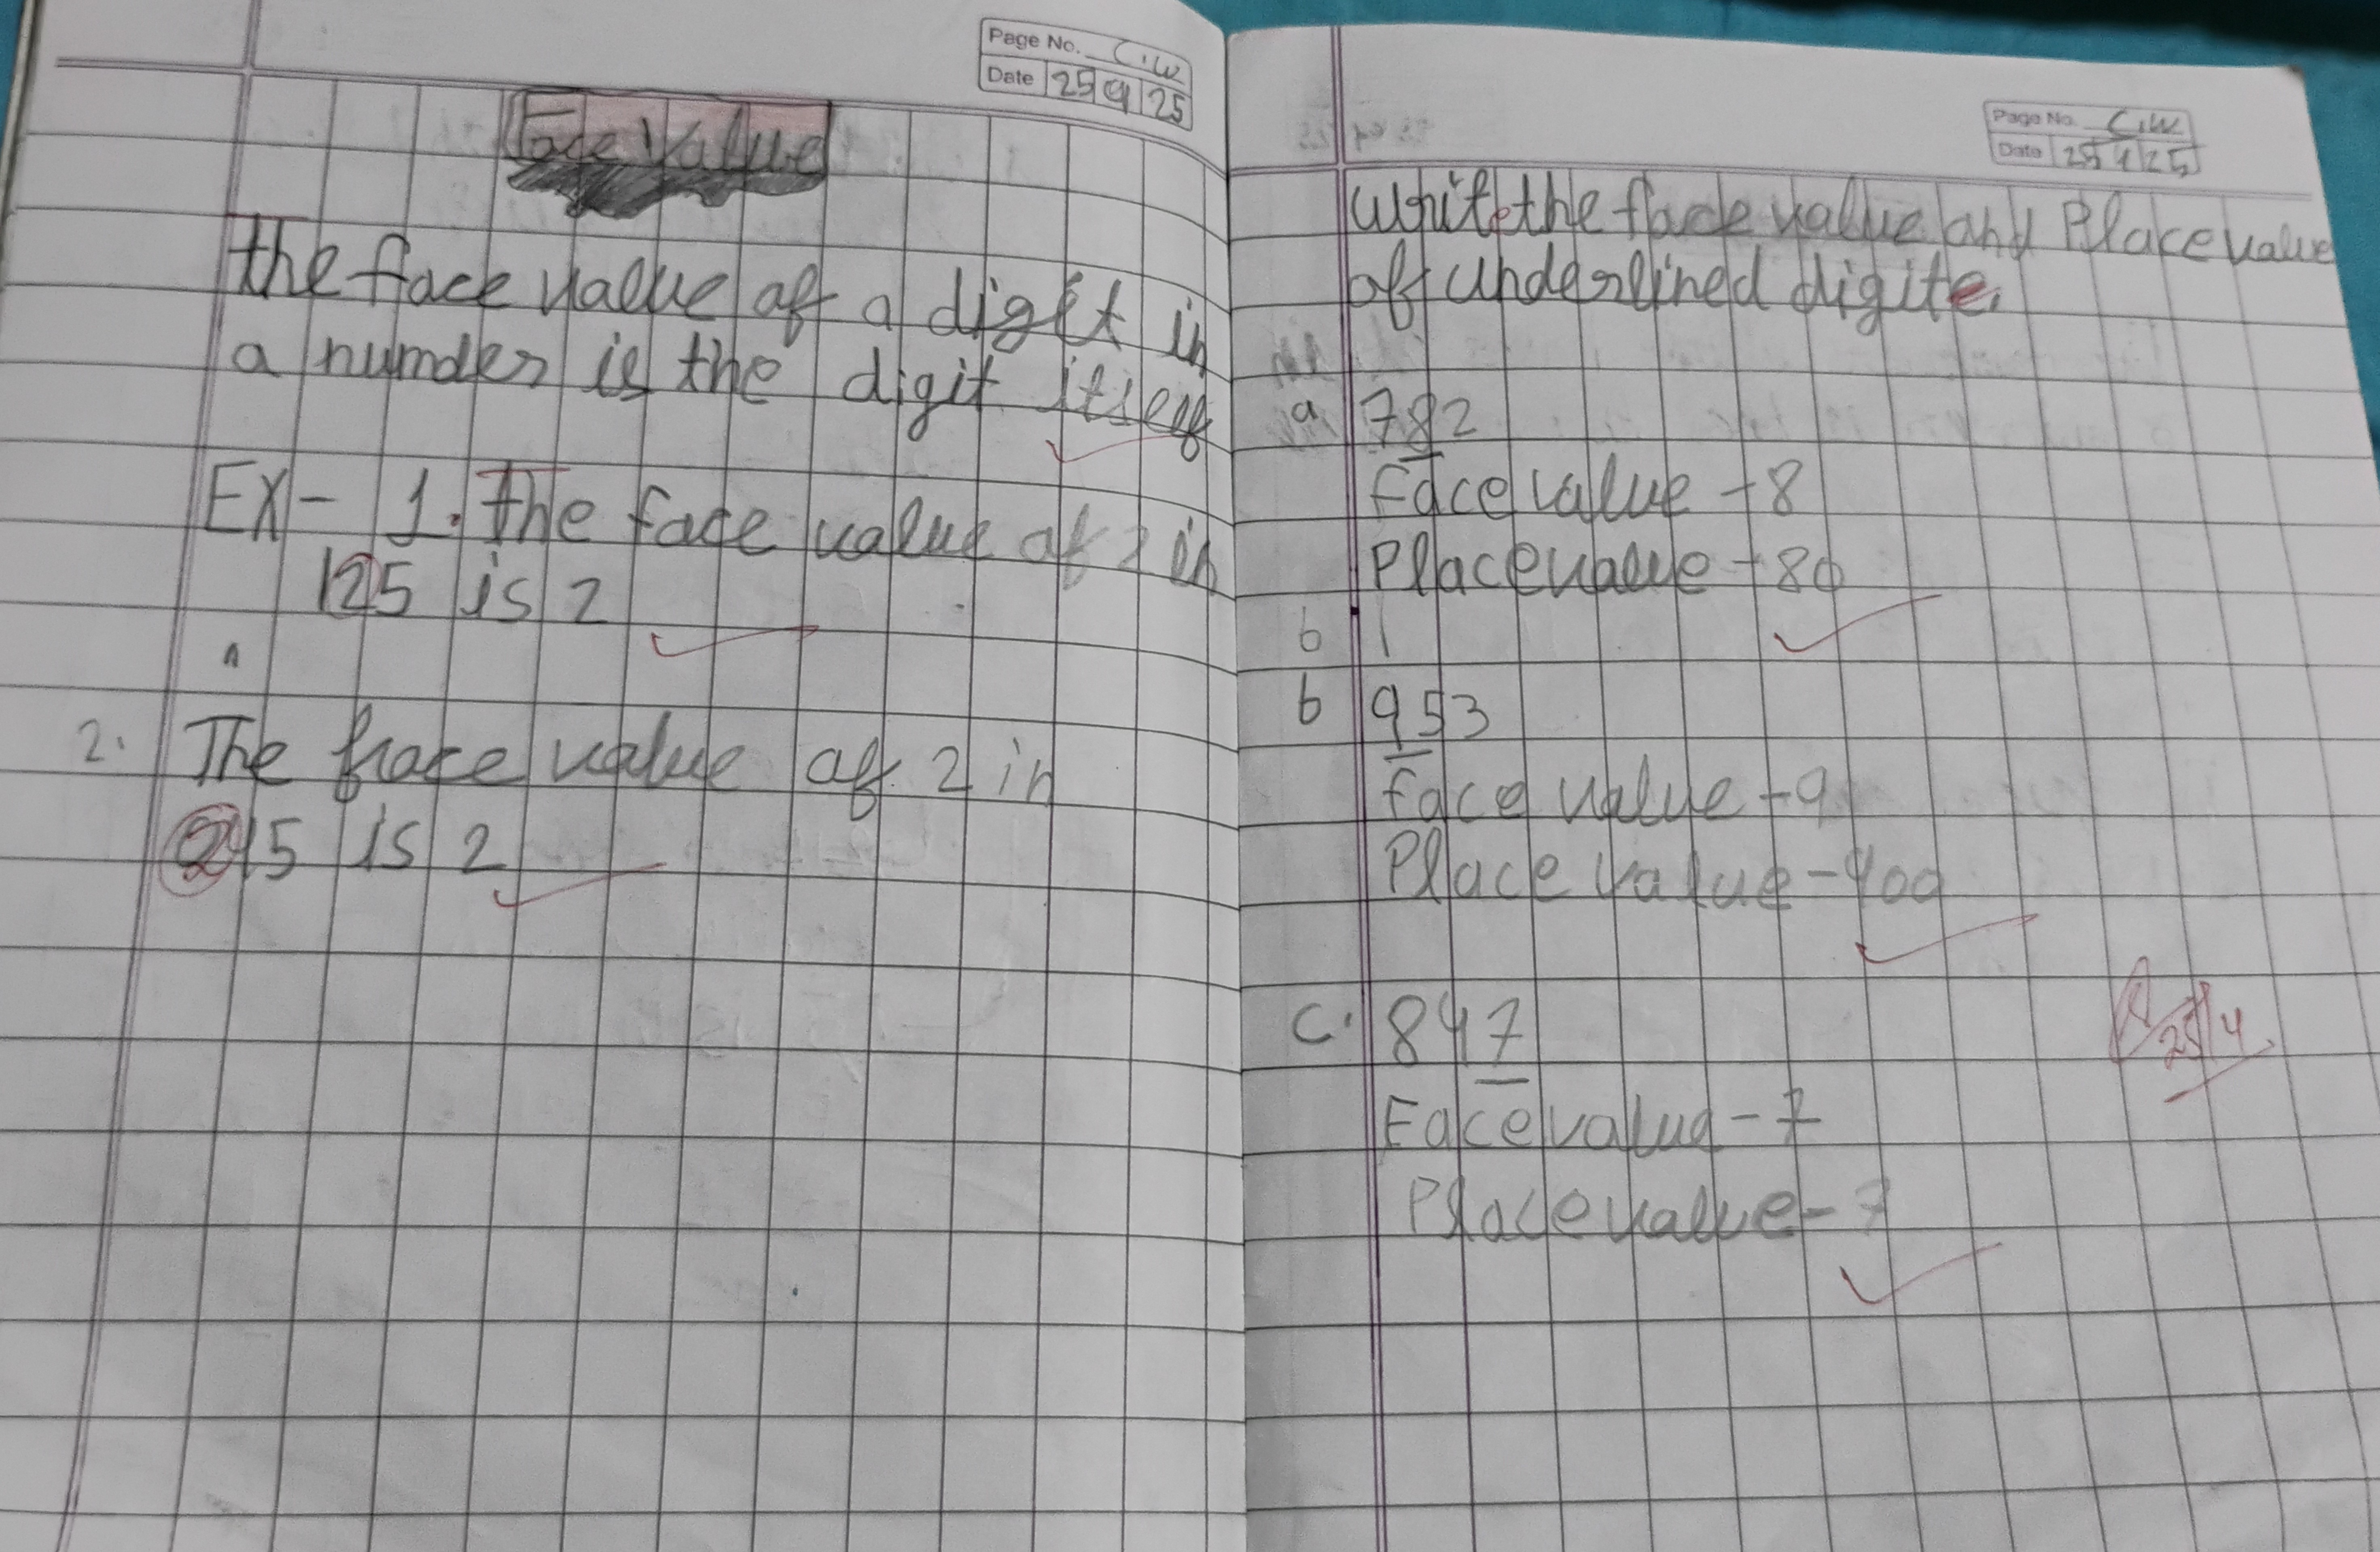 Page No. C.W
Date 25 4 25
Face Value
the face value of a digit in
a number is the digit itself
EX- 1. The face value of 2 in
125 is 2
2. The face value of 2 in
245 is 2
Page No. C.W
Date 25 4 25
Write the face value and Place value
of underlined digite.
a 782
face value - 8
Place value - 80
b 1
b 953
face value - 9
Place value - 900
c. 847
Face value - 7
Place value - 7
25/4